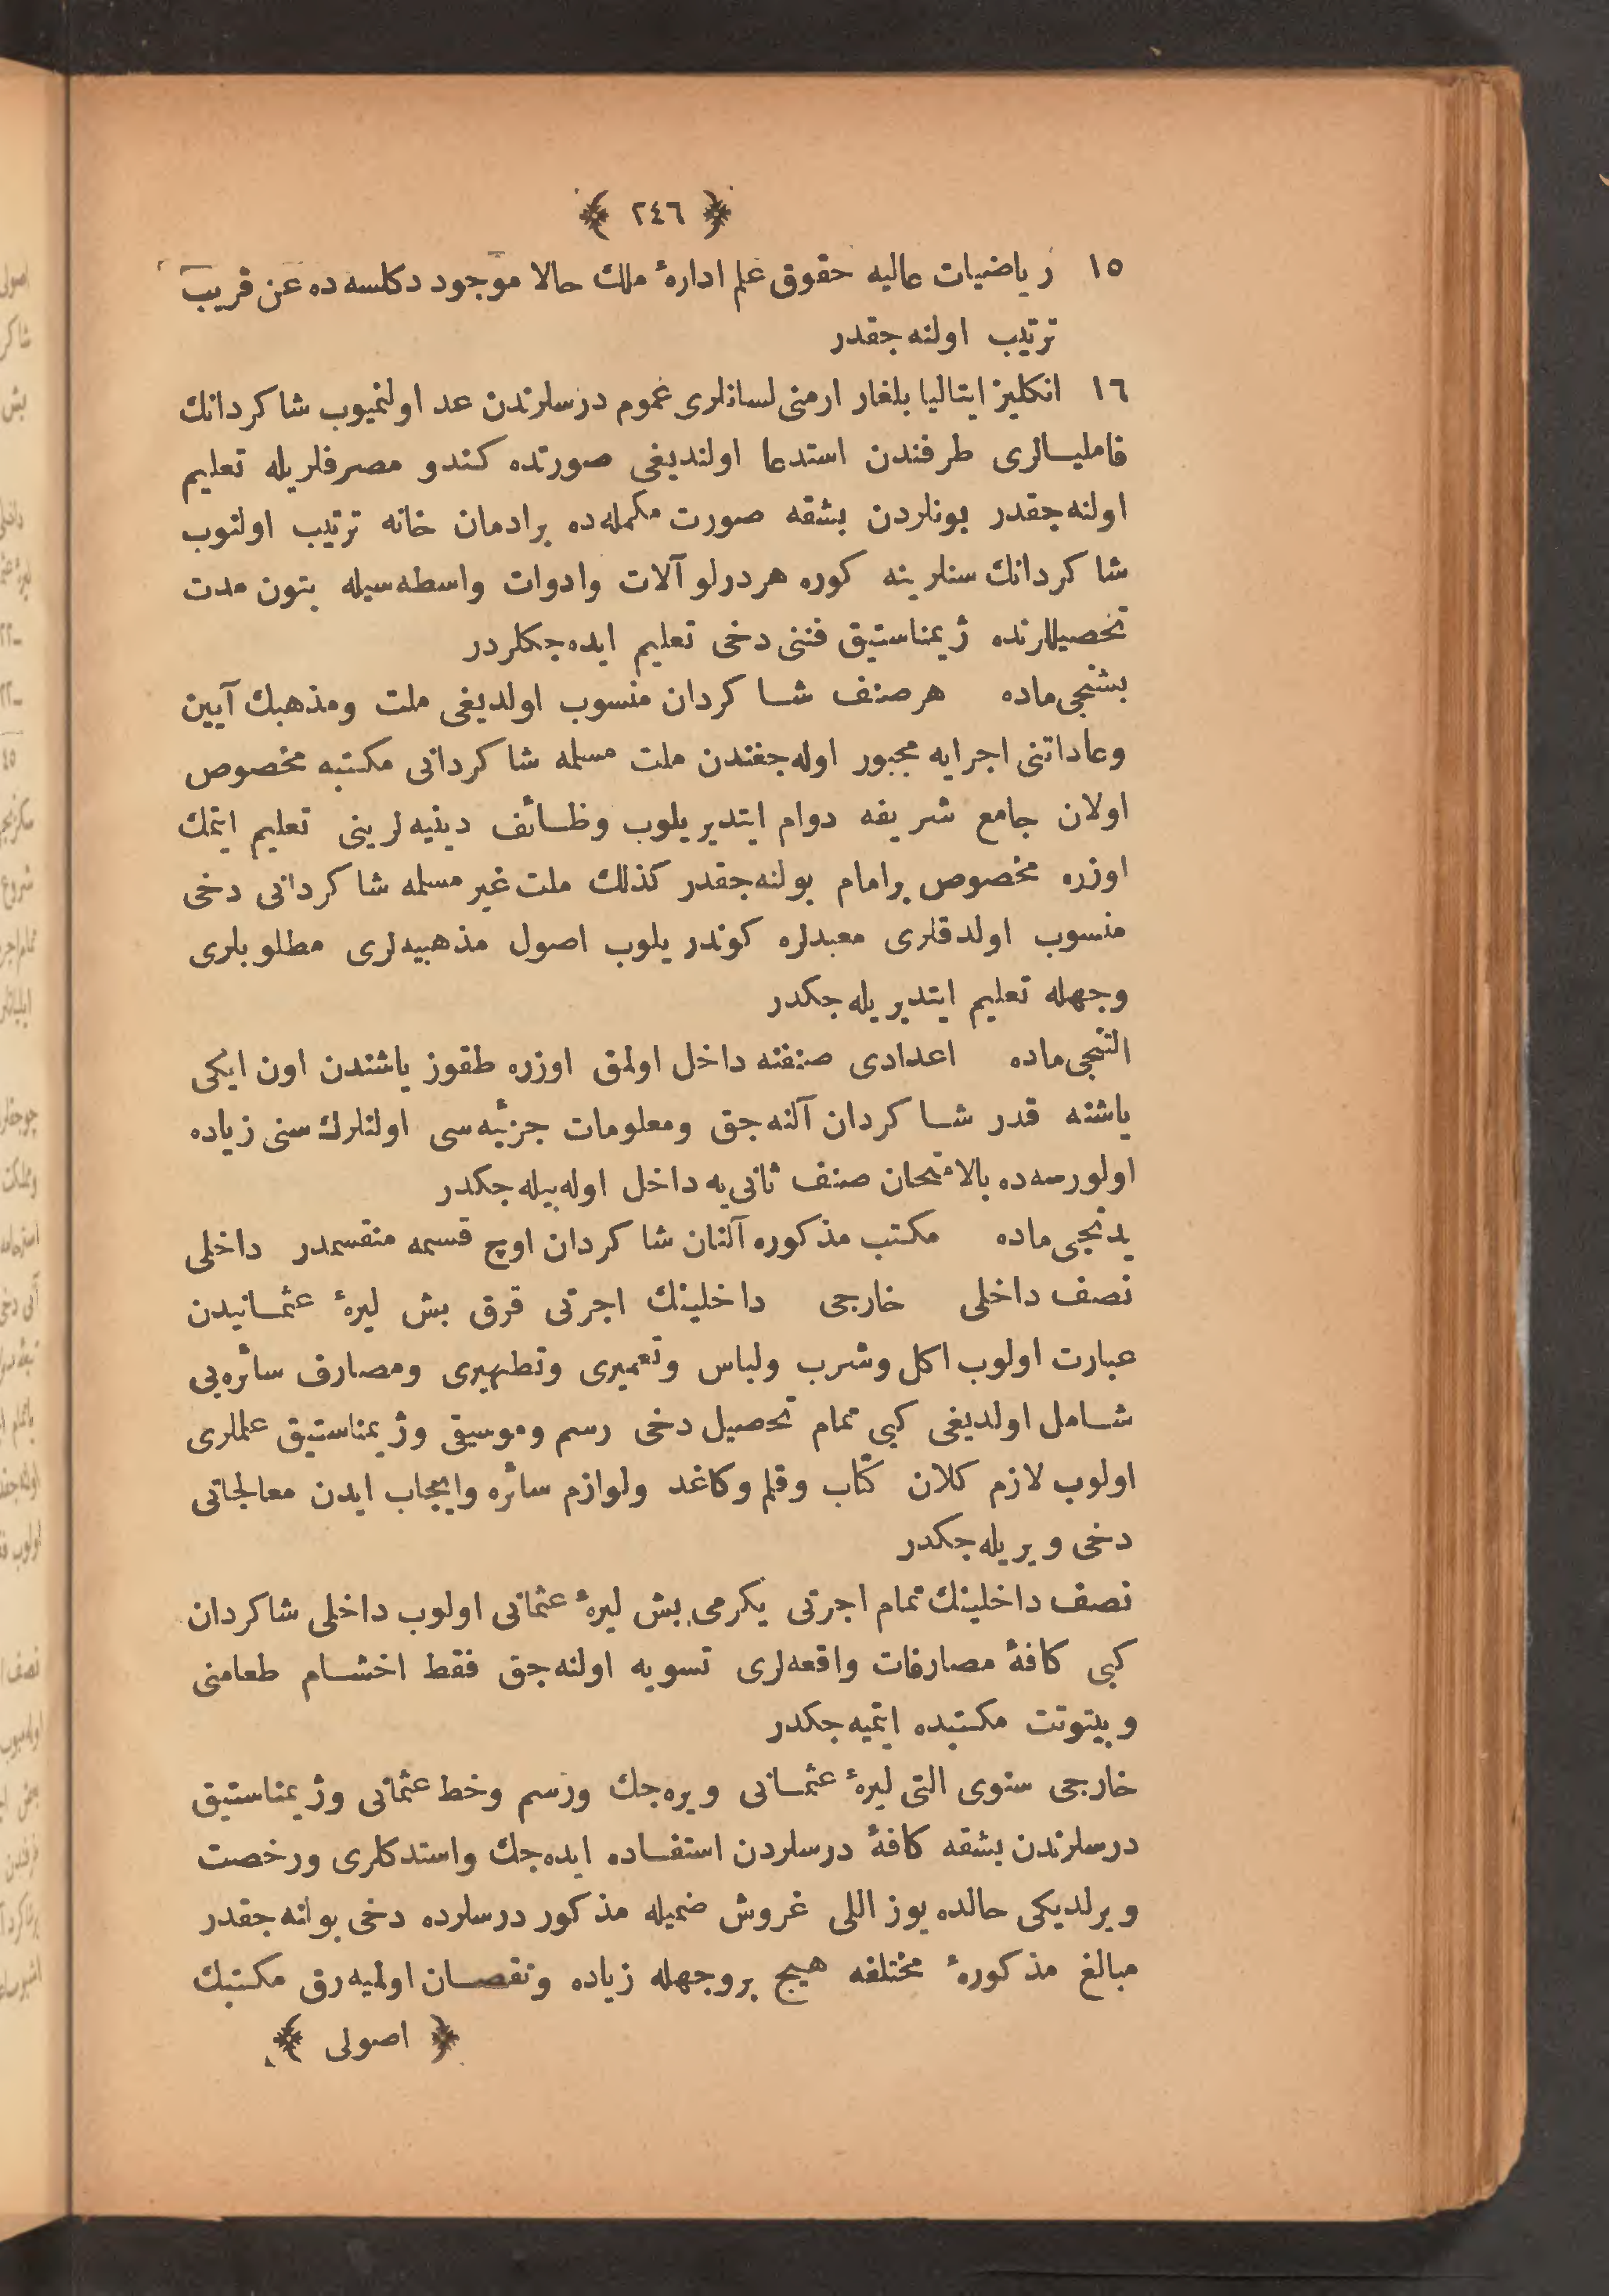 ﴿ ٢٤٦ ﴾
١٥ رياضيات عاليه حقوق علم ادارۀ ملك حالا موجود دكلسه ده عن قريب
ترتيب اولنه جقدر
١٦ انكليز ايتاليا بلغار ارمنى لسانلرى عموم درسلرندن عد اولنميوب شاكردانك
فامليالرى طرفندن استدعا اولنديغى صورتده كندو مصرفلريله تعليم
اولنه جقدر بونلردن بشقه صورت مكمله ده برادمان خانه ترتيب اولنوب
شاكردانك سنلرينه كوره هردرلو آلات وادوات واسطه سيله بتون مدت
تحصيللرنده ژيمناستيق فننى دخى تعليم ايده جكلردر
بشنجى ماده هر صنف شاكردان منسوب اولديغى ملت ومذهبك آيين
وعاداتنى اجرايه مجبور اوله جغندن ملت مسلمه شاكردانى مكتبه مخصوص
اولان جامع شريفه دوام ايتديريلوب وظائف دينيه لرينى تعليم ايتمك
اوزره مخصوص برامام بولنه جقدر كذلك ملت غير مسلمه شاكردانى دخى
منسوب اولدقلرى معبدلره كوندريلوب اصول مذهبيه لرى مطلوبلرى
وجهله تعليم ايتديريله جكدر
التنجى ماده اعدادى صنفنه داخل اولمق اوزره طقوز ياشندن اون ايكى
ياشنه قدر شاكردان آلنه جق ومعلومات جزئيه سى اولنلرك سنى زياده
اولورسه ده بالامتحان صنف ثانى يه داخل اوله بيله جكدر
يدنجى ماده مكتب مذكوره آلنان شاكردان اوچ قسمه منقسمدر داخلى
نصف داخلى خارجى داخلينك اجرتى قرق بش ليرۀ عثمانيدن
عبارت اولوب اكل وشرب ولباس وتعميرى وتطهيرى ومصارف سائره يى
شامل اولديغى كبى تمام تحصيل دخى رسم وموسيقى وژيمناستيق علملرى
اولوب لازم كلان كتاب وقلم وكاغد ولوازم سائره وايجاب ايدن معالجاتى
دخى ويريله جكدر
نصف داخلينك تمام اجرتى يكرمى بش ليرۀ عثمانى اولوب داخلى شاكردان
كبى كافۀ مصارفات واقعه لرى تسويه اولنه جق فقط اخشام طعامنى
وبيتوتت مكتبده ايتميه جكدر
خارجى سنوى التى ليرۀ عثمانى ويره جك ورسم وخط عثمانى وژيمناستيق
درسلرندن بشقه كافۀ درسلردن استفاده ايده جك واستدكلرى ورخصت
ويرلديكى حالده يوز اللى غروش ضميله مذكور درسلرده دخى بولنه جقدر
مبالغ مذكورۀ مختلفه هيچ بروجهله زياده ونقصان اولميه رق مكتبك
﴿ اصولى ﴾